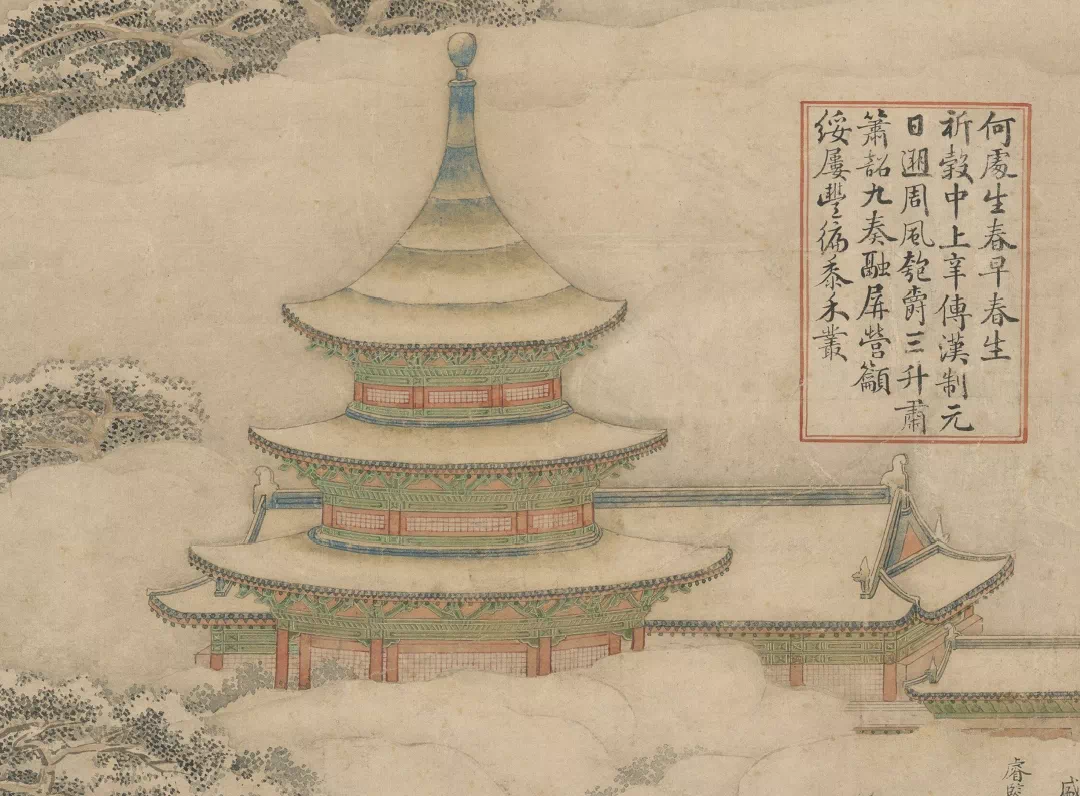 何處生春早春生
祈穀中上辛傳漢制元
日遡周風匏爵三升肅
簫韶九奏融屏營籲
綏屢豐徧黍禾叢
睿